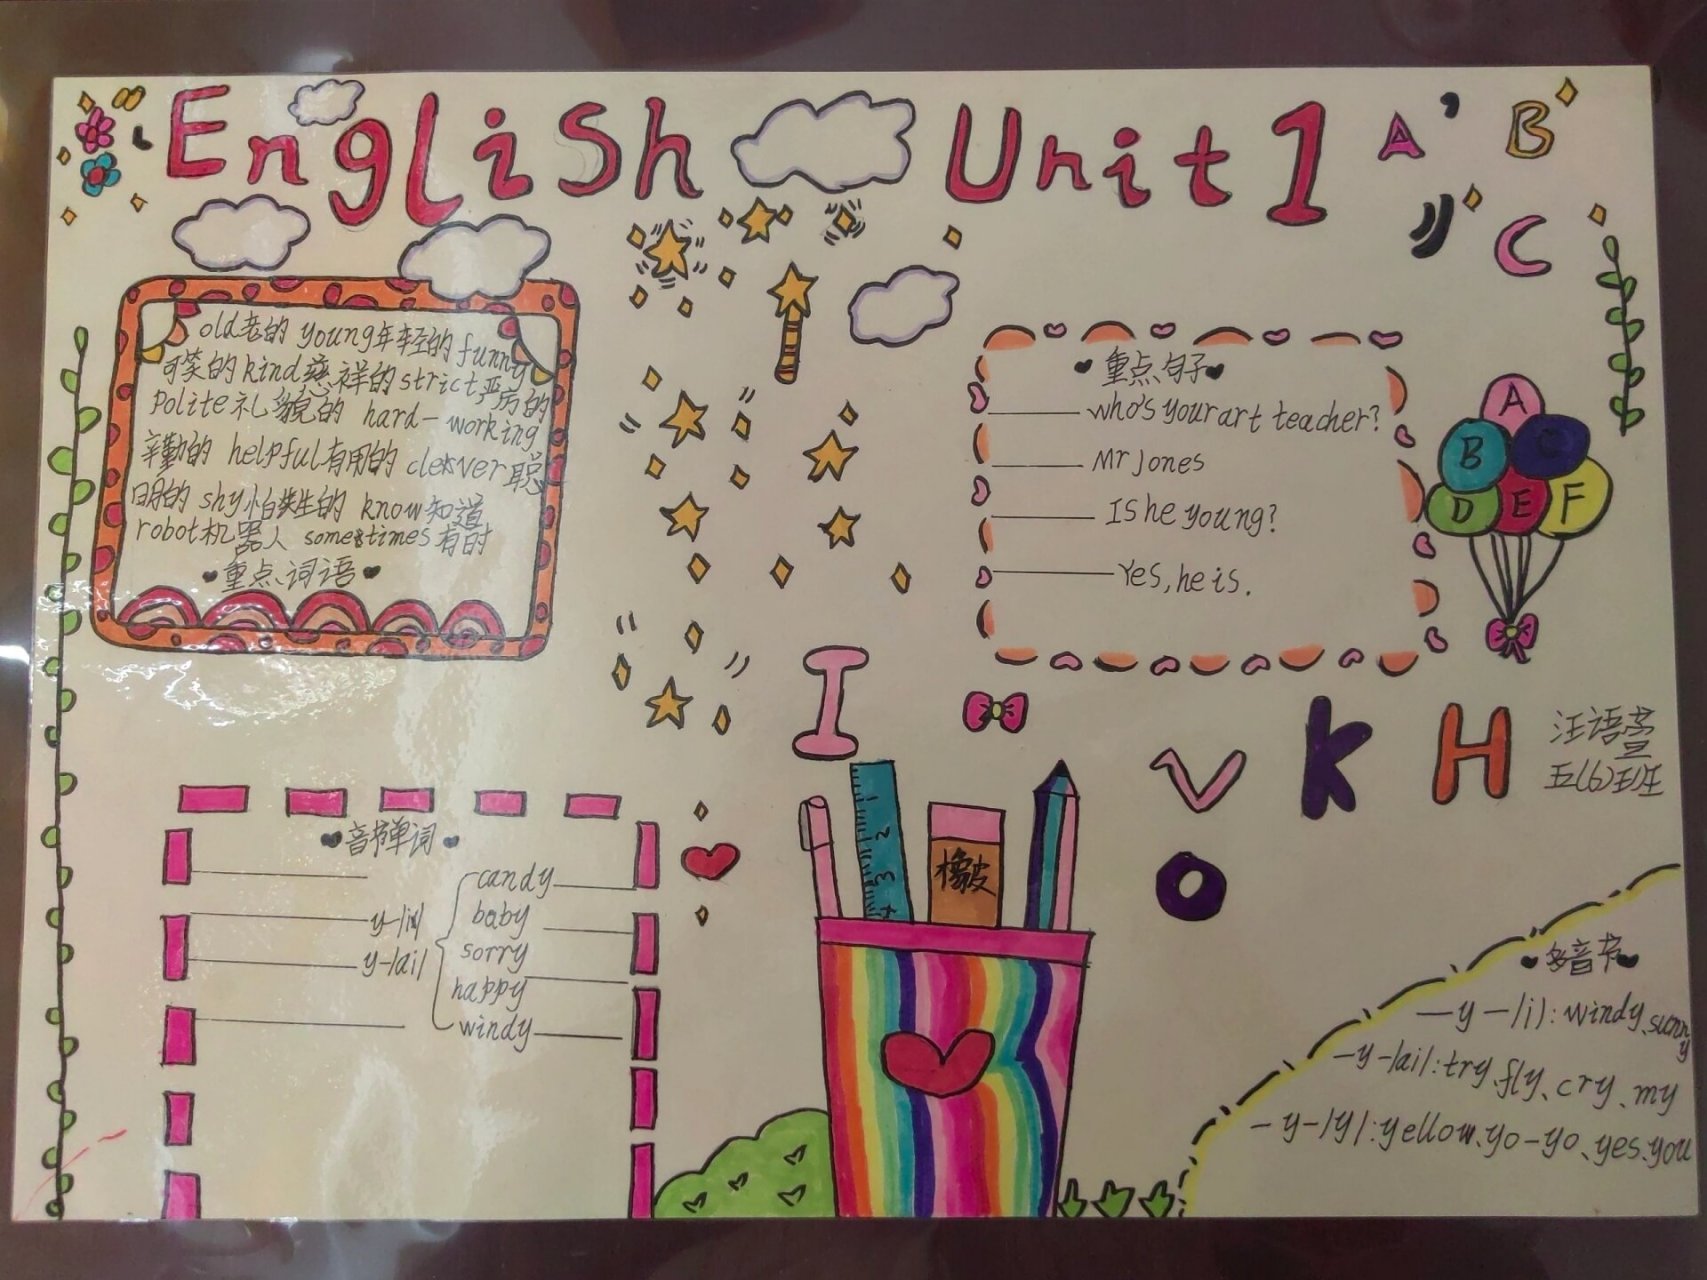 English Unit 1
A
B
C
old老的 young年轻的 funny
可笑的 kind慈祥的 strict严厉的
Polite礼貌的 hard-working
辛勤的 helpful有用的 clever聪
明的 shy怕生的 know知道
robot机器人 sometimes有时
重点词语
重点句子
who's your art teacher?
Mr Jones
Is he young?
Yes, he is.
A
B C
D E F
I
V K H
O
汪语萱
五(6)班
音节单词
candy
y-/i/ baby
y-/ai/ sorry
happy
windy
1
2
3
4
橡皮
多音节
—y—/i/: windy、sunny
—y-/ai/: try、fly、cry、my
-y-/y/: yellow、yo-yo、yes、you